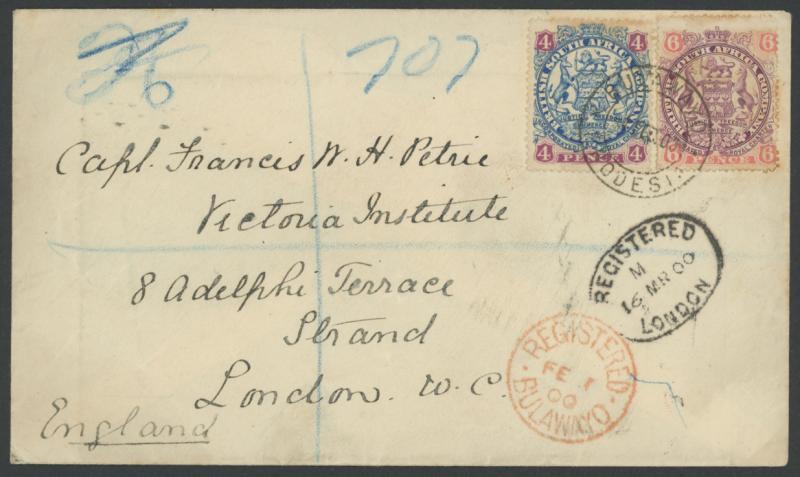 707
4 4
BRITISH SOUTH AFRICA COMPANY
JUSTICE FREEDOM
COMMERCE
4 PENCE 4
6 6
BRITISH SOUTH AFRICA COMPANY
6 PENCE 6
BULAWAYO
RHODESIA
Capt. Francis W. H. Petrie
Victoria Institute
8 Adelphi Terrace
Strand
London. W. C.
England
REGISTERED
M
16 MR 00
LONDON
REGISTERED
FE 1
00
BULAWAYO